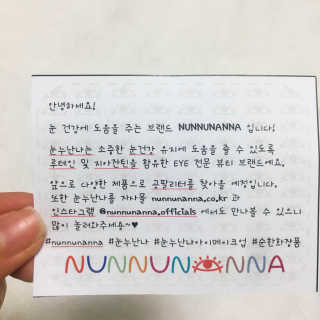 안녕하세요!
눈 건강에 도움을 주는 브랜드 NUNNUNANNA 입니다!
눈누난나는 소중한 눈건강 유지에 도움을 줄 수 있도록
루테인 및 지아잔틴을 함유한 EYE 전문 뷰티 브랜드예요.
앞으로 다양한 제품으로 굿팔리터를 찾아올 예정입니다.
또한 눈누난나를 자사몰 nunnunanna.co.kr 과
인스타그램 @nunnunanna.officials 에서도 만나볼 수 있으니
많이 놀러와주세용~♥
#nunnunanna #눈누난나 #눈누난나아이메이크업 #순환화장품
NUNNUNANNA